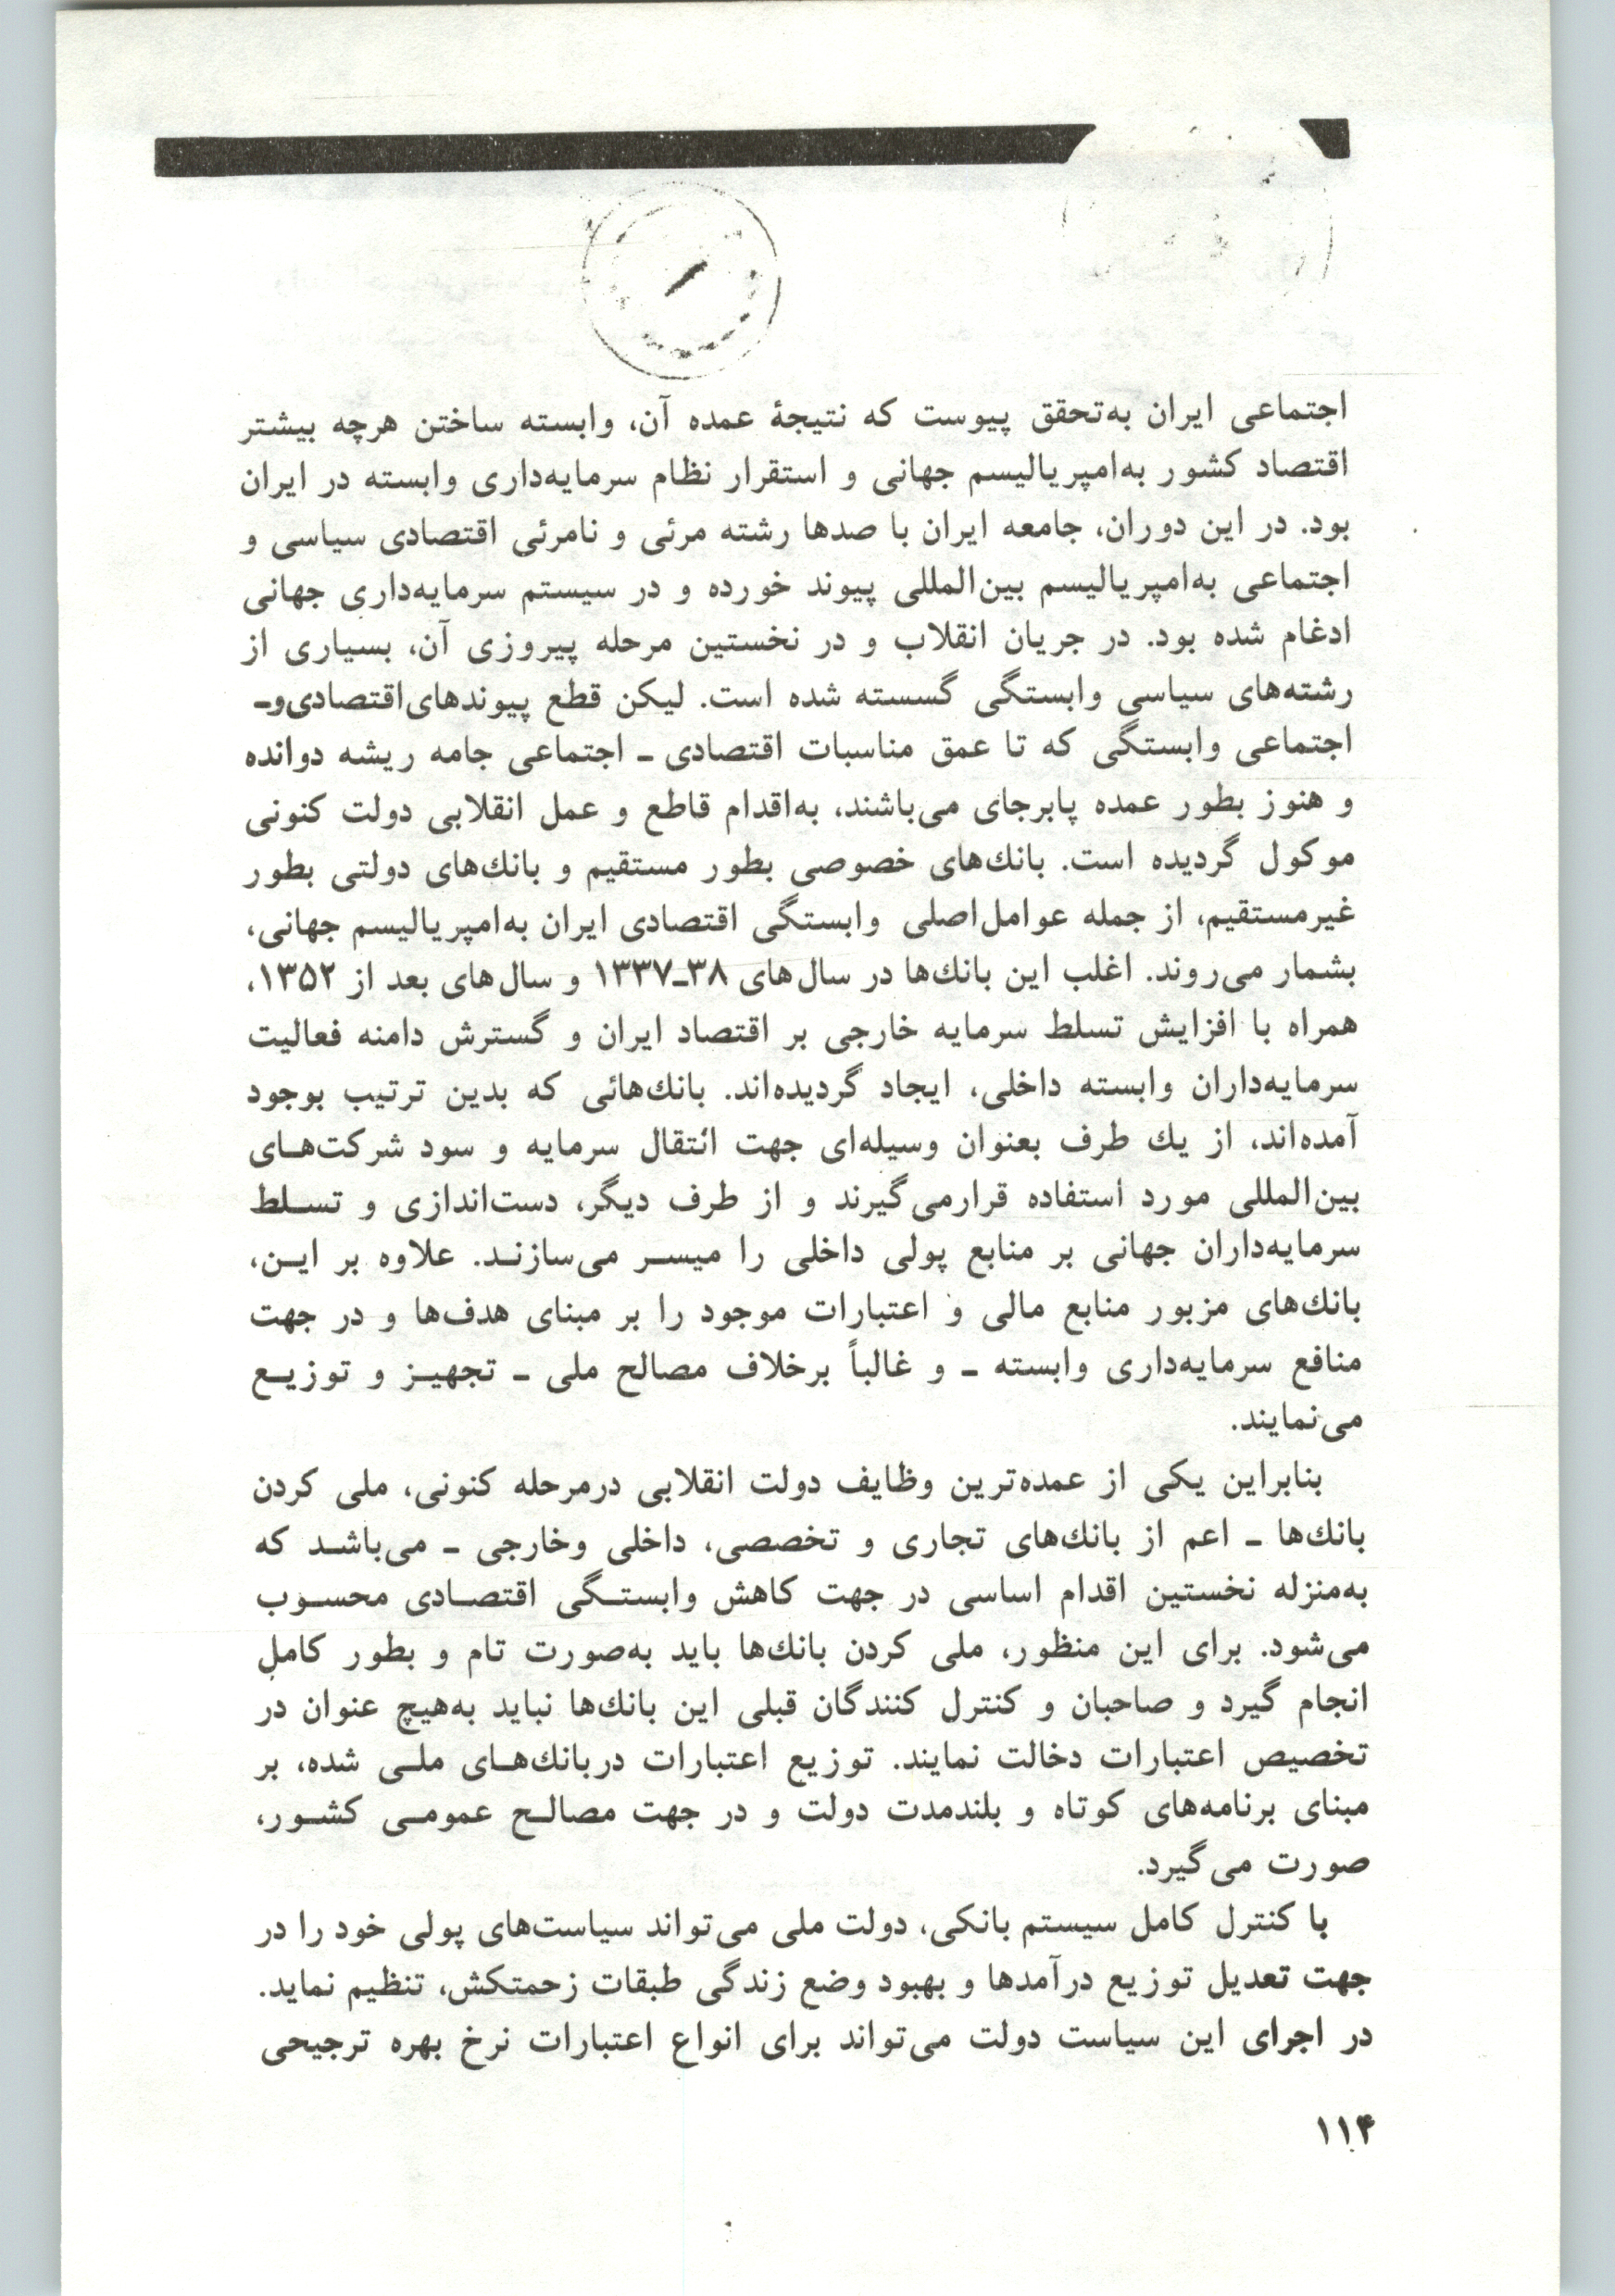 اجتماعی ایران به‌تحقق پیوست که نتیجهٔ عمده آن، وابسته ساختن هرچه بیشتر
اقتصاد کشور به‌امپریالیسم جهانی و استقرار نظام سرمایه‌داری وابسته در ایران
بود. در این دوران، جامعه ایران با صدها رشته مرئی و نامرئی اقتصادی سیاسی و
اجتماعی به‌امپریالیسم بین‌المللی پیوند خورده و در سیستم سرمایه‌داری جهانی
ادغام شده بود. در جریان انقلاب و در نخستین مرحله پیروزی آن، بسیاری از
رشته‌های سیاسی وابستگی گسسته شده است. لیکن قطع پیوندهای‌اقتصادی‌وـ
اجتماعی وابستگی که تا عمق مناسبات اقتصادی ـ اجتماعی جامه ریشه دوانده
و هنوز بطور عمده پابرجای می‌باشند، به‌اقدام قاطع و عمل انقلابی دولت کنونی
موکول گردیده است. بانك‌های خصوصی بطور مستقیم و بانك‌های دولتی بطور
غیرمستقیم، از جمله عوامل‌اصلی وابستگی اقتصادی ایران به‌امپریالیسم جهانی،
بشمار می‌روند. اغلب این بانك‌ها در سال‌های ۳۸ـ۱۳۳۷ و سال‌های بعد از ۱۳۵۲،
همراه با افزایش تسلط سرمایه خارجی بر اقتصاد ایران و گسترش دامنه فعالیت
سرمایه‌داران وابسته داخلی، ایجاد گردیده‌اند. بانك‌هائی که بدین ترتیب بوجود
آمده‌اند، از یك طرف بعنوان وسیله‌ای جهت انتقال سرمایه و سود شرکت‌هـای
بین‌المللی مورد استفاده قرارمی‌گیرند و از طرف دیگر، دست‌اندازی و تسـلط
سرمایه‌داران جهانی بر منابع پولی داخلی را میسـر می‌سازنـد. علاوه بر ایـن،
بانك‌های مزبور منابع مالی و اعتبارات موجود را بر مبنای هدف‌ها و در جهت
منافع سرمایه‌داری وابسته ـ و غالباً برخلاف مصالح ملی ـ تجهیـز و توزیـع
می‌نمایند.
بنابراین یکی از عمده‌ترین وظایف دولت انقلابی درمرحله کنونی، ملی کردن
بانك‌ها ـ اعم از بانك‌های تجاری و تخصصی، داخلی وخارجی ـ می‌باشـد که
به‌منزله نخستین اقدام اساسی در جهت کاهش وابستـگی اقتصـادی محسـوب
می‌شود. برای این منظور، ملی کردن بانك‌ها باید به‌صورت تام و بطور کامل
انجام گیرد و صاحبان و کنترل کنندگان قبلی این بانك‌ها نباید به‌هیچ عنوان در
تخصیص اعتبارات دخالت نمایند. توزیع اعتبارات دربانك‌هـای ملـی شده، بر
مبنای برنامه‌های کوتاه و بلندمدت دولت و در جهت مصالـح عمومـی کشـور،
صورت می‌گیرد.
با کنترل کامل سیستم بانکی، دولت ملی می‌تواند سیاست‌های پولی خود را در
جهت تعدیل توزیع درآمدها و بهبود وضع زندگی طبقات زحمتکش، تنظیم نماید.
در اجرای این سیاست دولت می‌تواند برای انواع اعتبارات نرخ بهره ترجیحی
۱۱۴